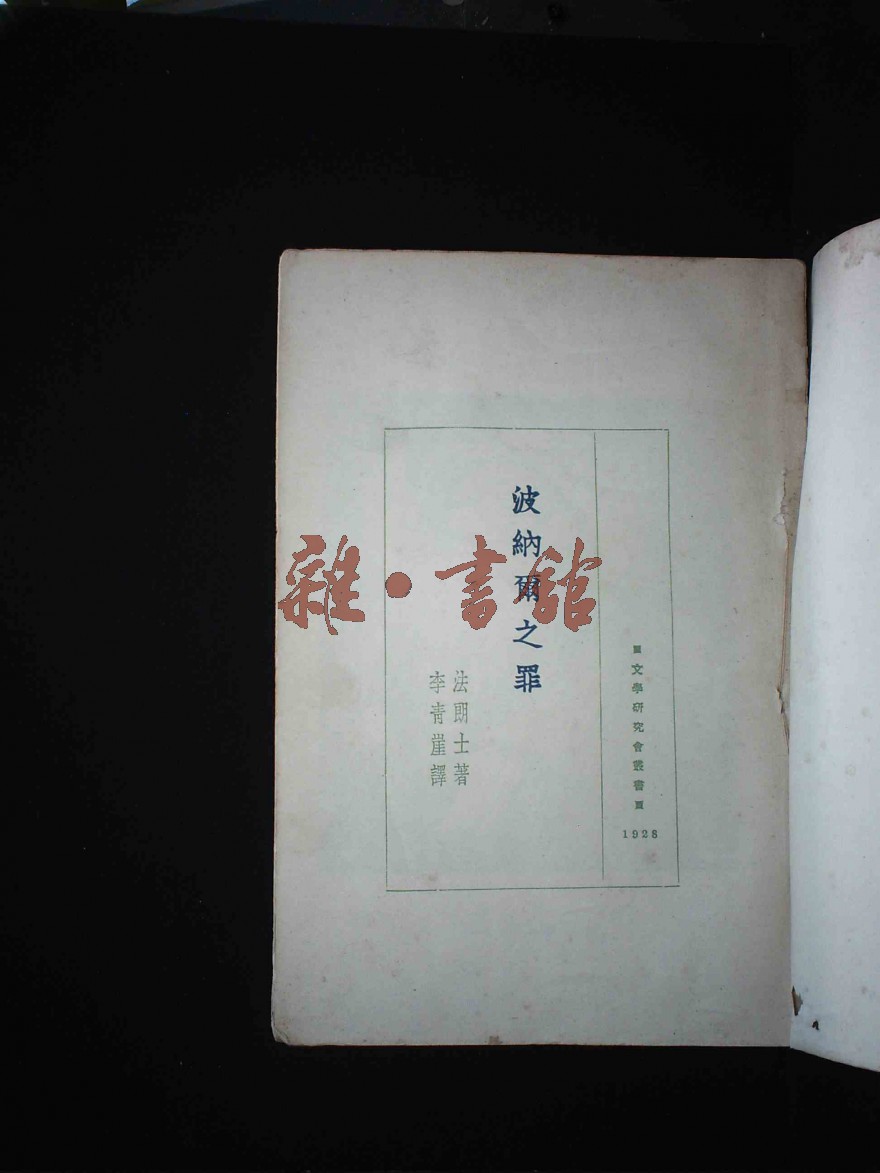 文學研究會叢書
1928
波納爾之罪
法朗士著
李青崖譯
雜·書館